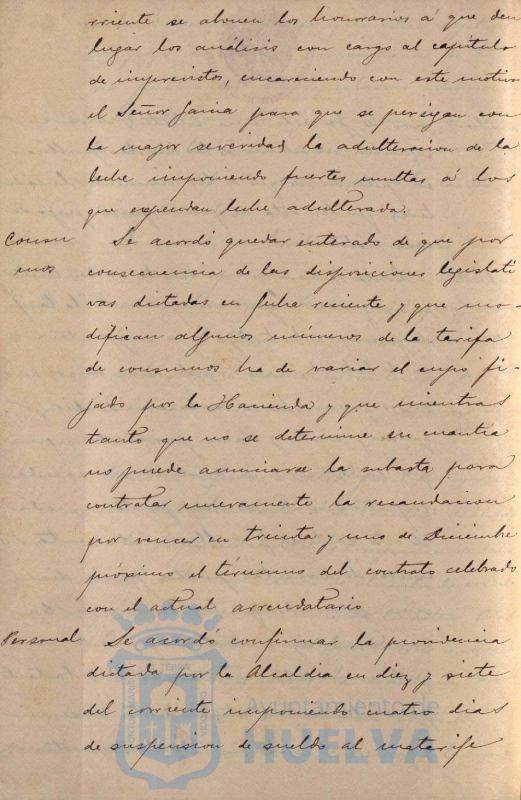 rriente se abonen los honorarios á que den
lugar los análisis con cargo al capítulo
de imprevistos, encareciendo con este motivo
el Señor Jaina para que se persigan con
la mayor severidad la adulteracion de la
leche imponiendo fuertes multas á los
que expendan leche adulterada.
Consu
mos
Se acordó quedar enterado de que por
consecuencia de las disposiciones legislati
vas dictadas en fecha reciente y que mo-
difican algunos números de la tarifa
de consumos ha de variar el cupo fi-
jado por la Hacienda y que mientras
tanto que no se determine su cuantía
no puede anunciarse la subasta para
contratar nuevamente la recaudacion
por vencer en treinta y uno de Diciembre
próximo el término del contrato celebrado
con el actual arrendatario
Personal
Se acordó confirmar la providencia
dictada por la Alcaldia en diez y siete
del corriente imponiendo cuatro dias
de suspension de sueldo al matarife
Ayuntamiento de
HUELVA